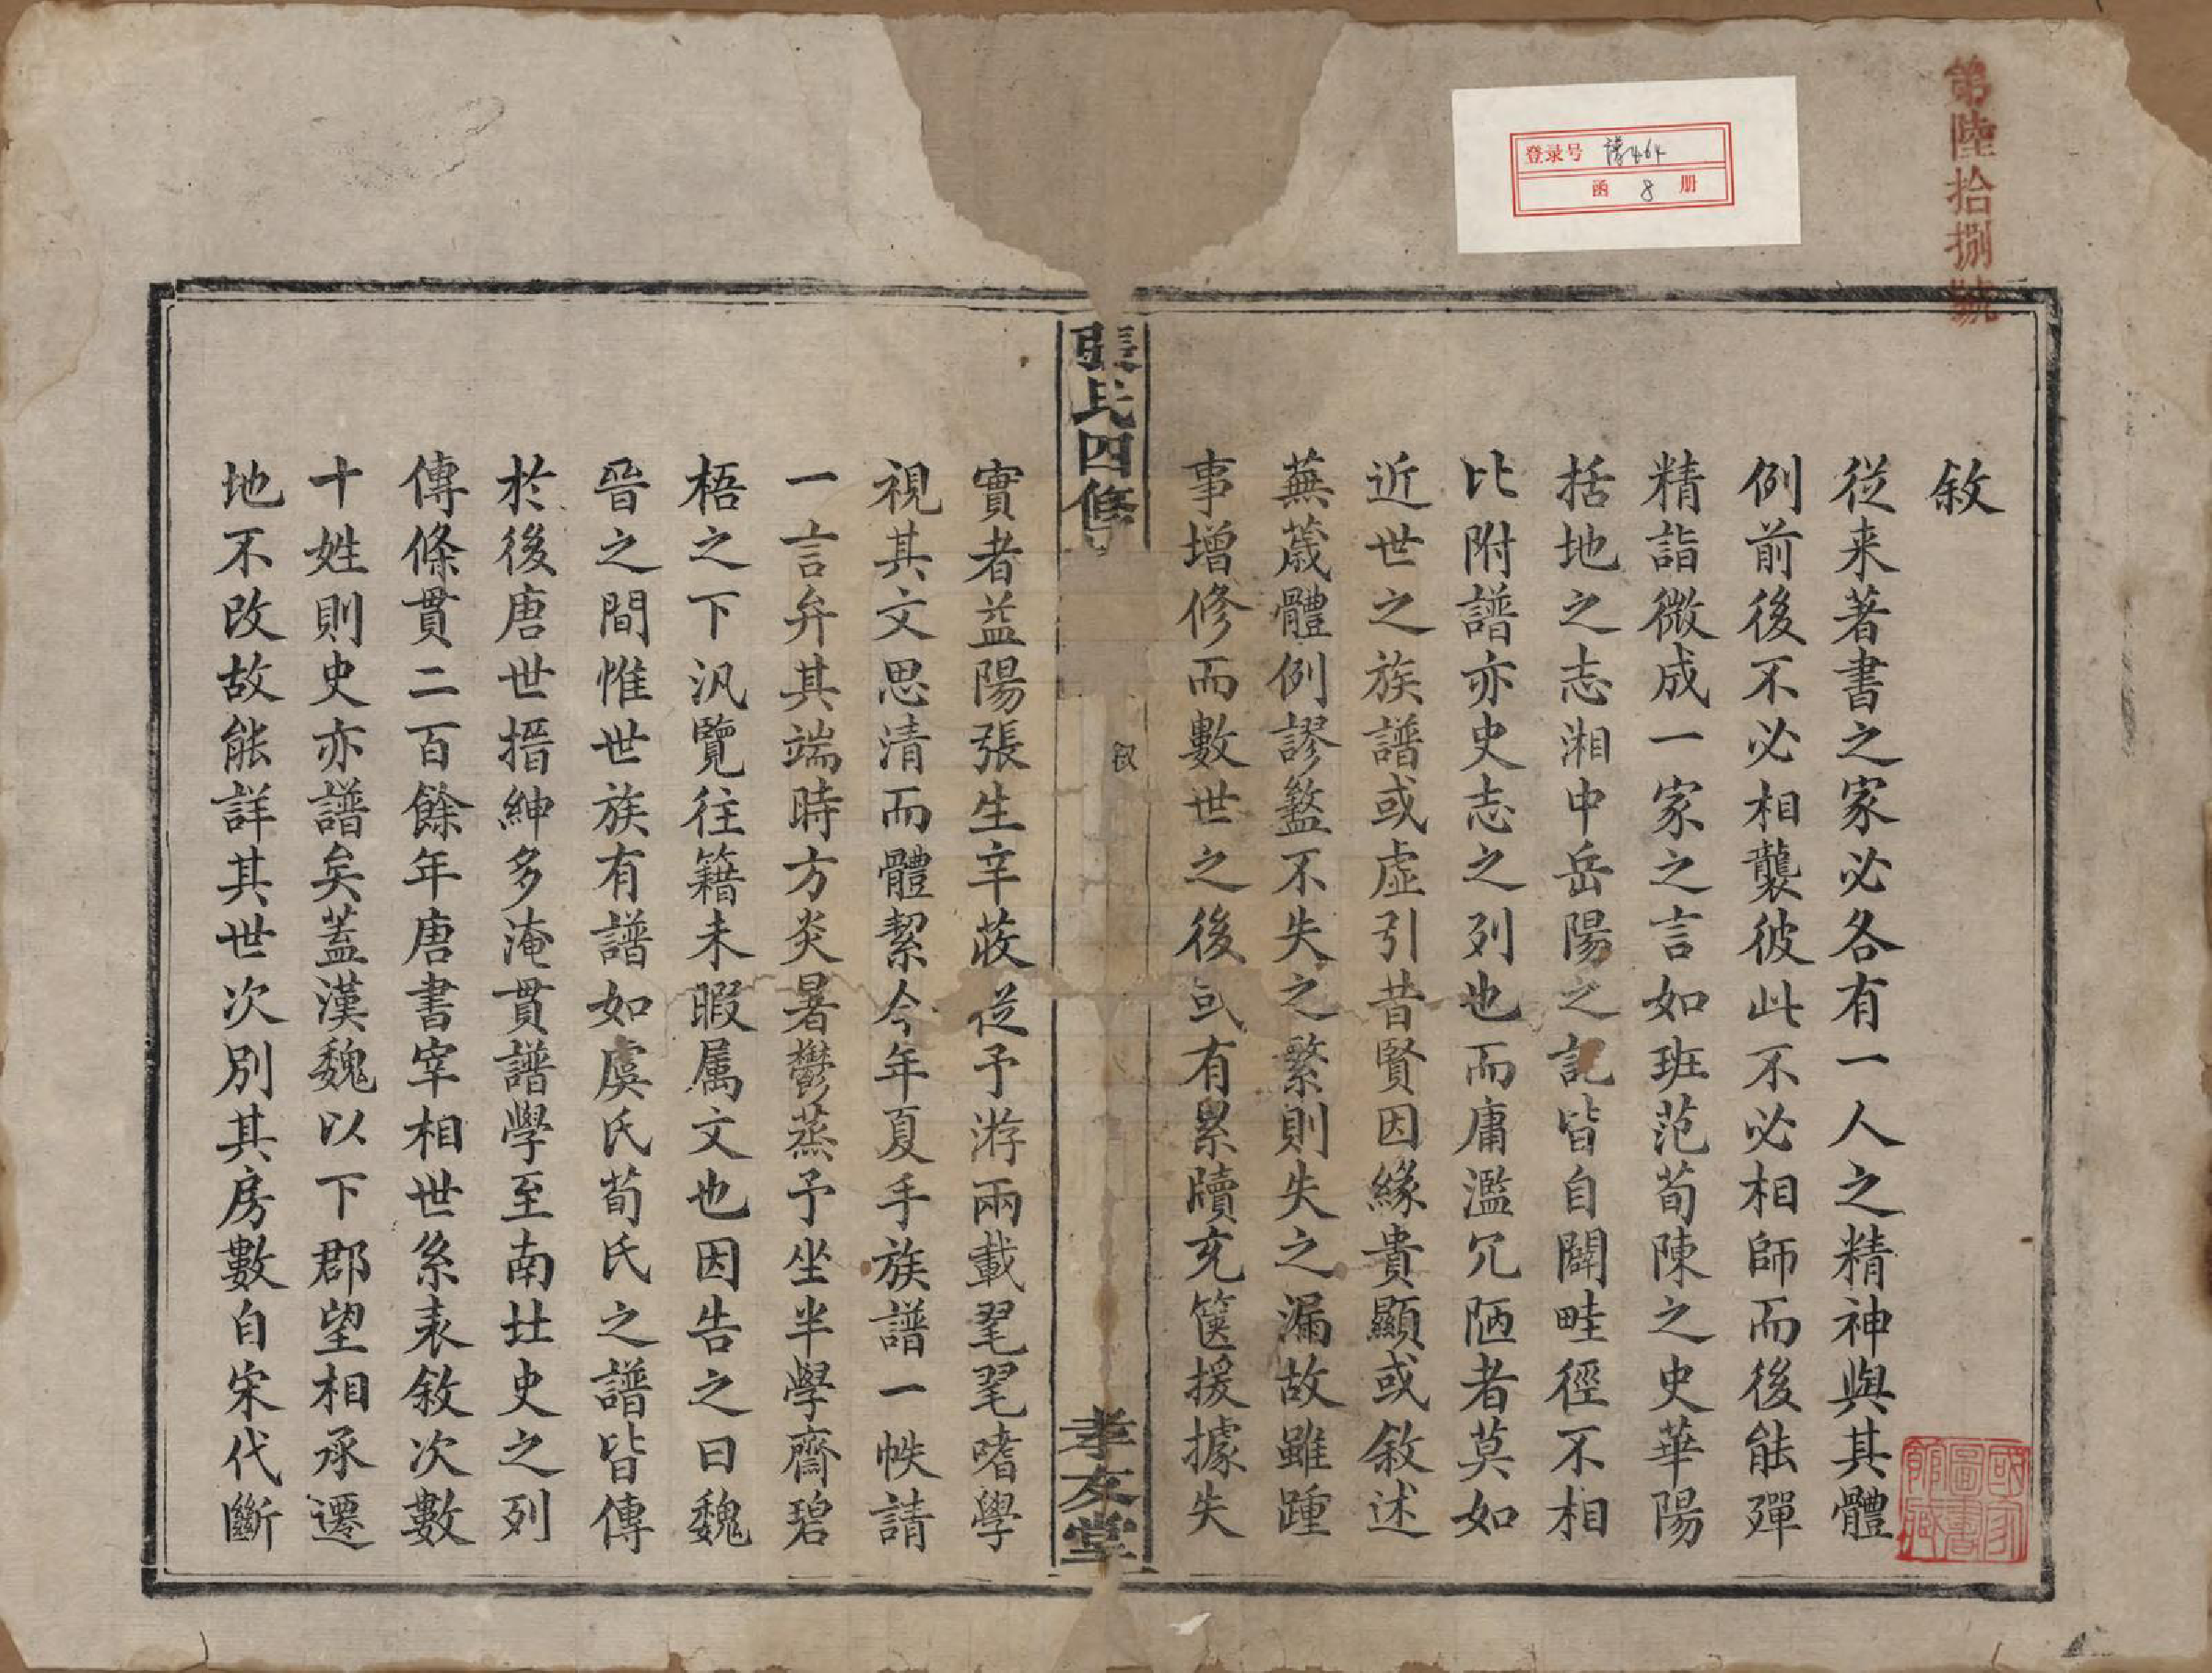 第陸拾捌號
登录号 譜464
函 8 册
敘
從来著書之家必各有一人之精神與其體
例前後不必相襲彼此不必相師而後能殫
精詣微成一家之言如班范荀陳之史華陽
括地之志湘中岳陽之記皆自闢畦徑不相
比附譜亦史志之列也而庸濫冗陋者莫如
近世之族譜或虛引昔賢因緣貴顯或敘述
蕪葳體例謬盭不失之繁則失之漏故雖踵
事增修而數世之後或有累牘充篋援據失
張氏四修
敘
孝友堂
實者益陽張生辛莰從予游兩載毣毣嗜學
視其文思清而體絜今年夏手族譜一帙請
一言弁其端時方炎暑鬱蒸予坐半學齋碧
梧之下汎覽往籍未暇属文也因告之曰魏
晉之間惟世族有譜如虞氏荀氏之譜皆傳
於後唐世搢紳多淹貫譜學至南北史之列
傳條貫二百餘年唐書宰相世系表敘次數
十姓則史亦譜矣蓋漢魏以下郡望相承遷
地不改故能詳其世次別其房數自宋代斷
國家圖書館藏